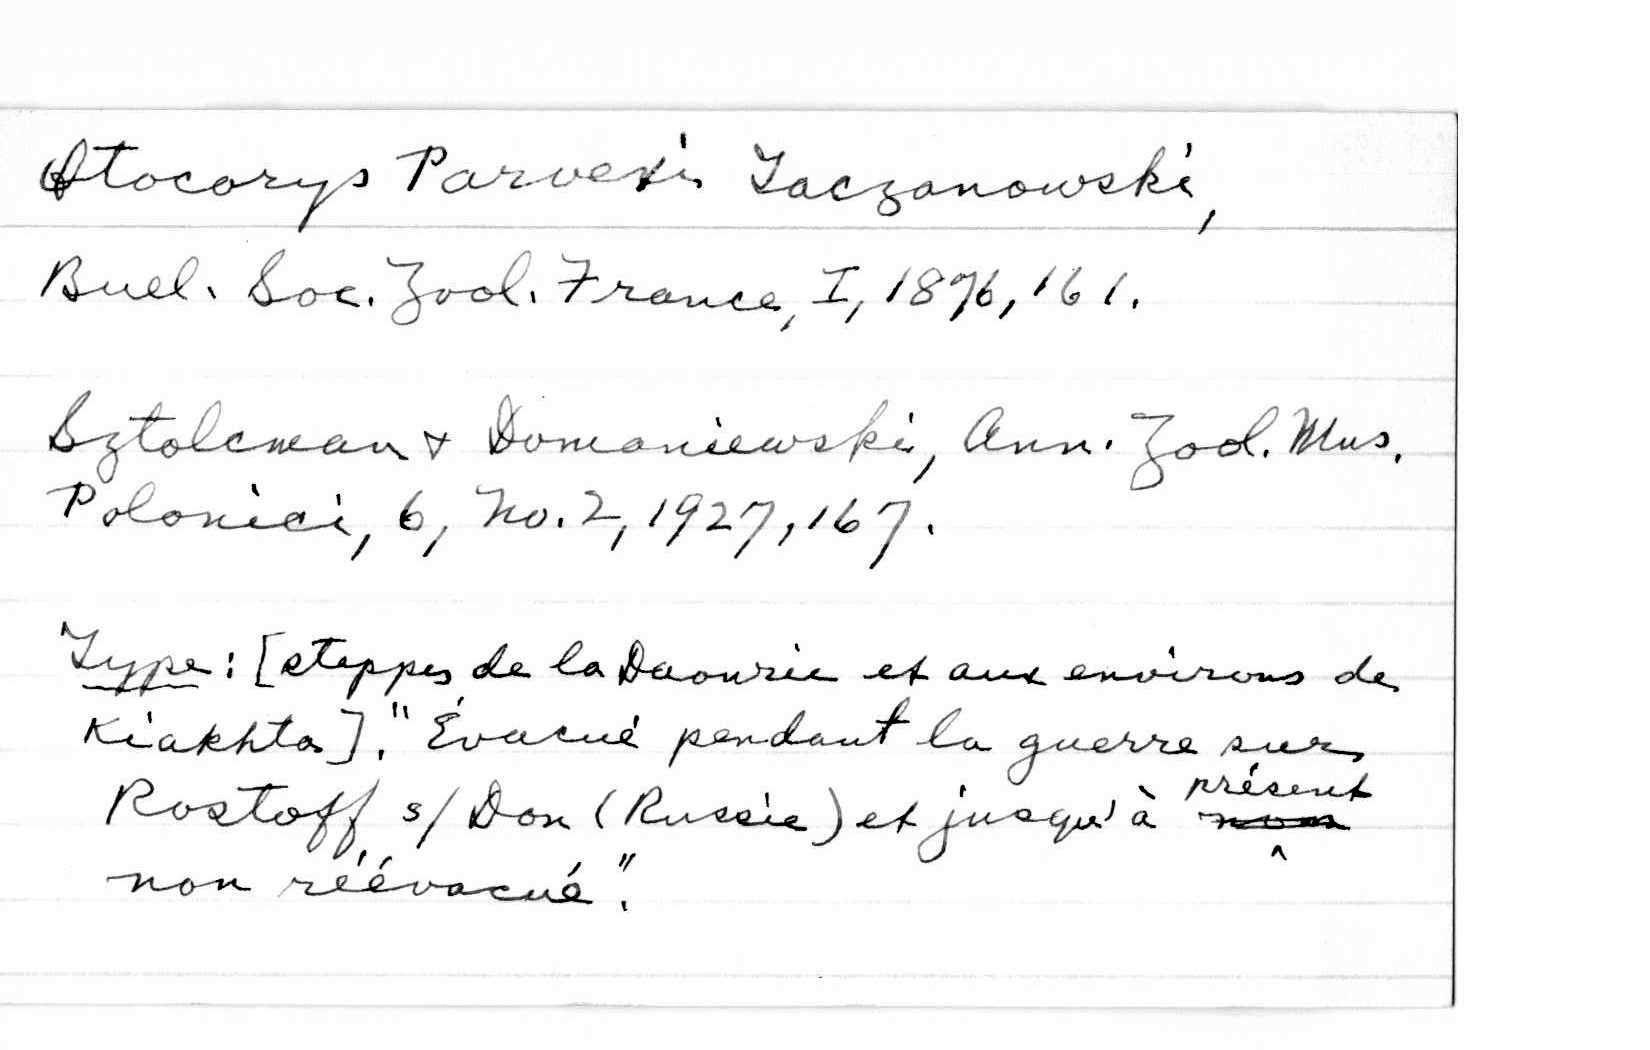 Otocorys Parvexi Taczanowski,
Bull. Soc. Zool. France, I, 1876, 161.
Sztolcman & Domaniewski, Ann. Zool. Mus.
Polonici, 6, No. 2, 1927, 167.
Type: [steppes de la Daourie et aux environs de
Kiakhta]. "Évacué pendant la guerre sur
Rostoff s/Don (Russie) et jusqu'à présent
non réévacué".